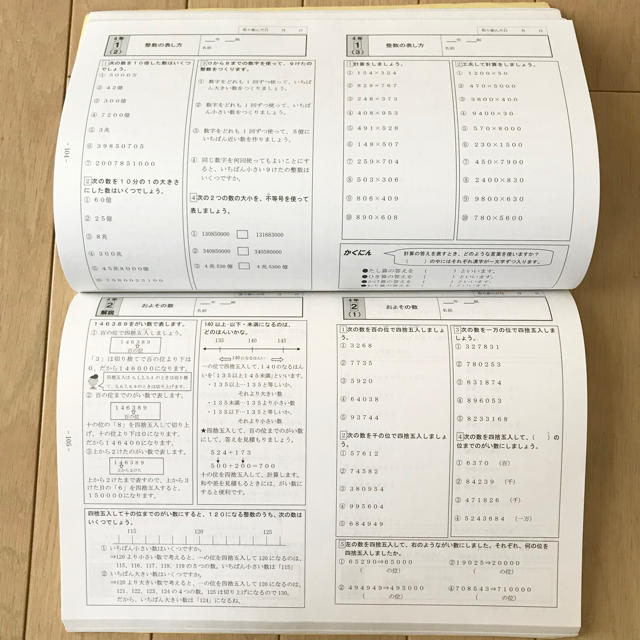 取り組んだ日　月　日
4年
1
(2)
整数の表し方
年　組
名前
1 次の数を10倍した数はいくつでしょう。
① 5000万
② 42億
③ 300億
④ 7200億
⑤ 3兆
⑥ 39850705
⑦ 2007851000
2 次の数を10分の1の大きさにした数はいくつでしょう。
① 60億
② 25億
③ 8兆
④ 300兆
⑤ 45兆8000億
3 0から8までの数字を使って、9けたの整数をつくります。
① 数字をどれも1回ずつ使って、いちばん大きい数をつくりましょう。
② 数字をどれも1回ずつ使って、いちばん小さい数をつくりましょう。
③ 数字をどれも1回ずつ使って、5億にいちばん近い数を作りましょう。
④ 同じ数字を何回使ってもよいことにすると、いちばん小さい9けたの整数はいくつですか。
4 次の2つの数の大小を、不等号を使って表しましょう。
① 130850000 □ 131683000
② 340850000 □ 340580000
③ 4兆530億 □ 4兆5300億
-104-
取り組んだ日　月　日
4年
1
(3)
整数の表し方
年　組
名前
1 計算をしましょう。
① 154×324
② 829×767
③ 248×373
④ 408×953
⑤ 491×528
⑥ 148×507
⑦ 259×704
⑧ 503×306
⑨ 806×909
⑩ 890×608
2 工夫して計算をしましょう。
① 1200×50
② 470×5000
③ 3800×400
④ 9400×30
⑤ 570×8000
⑥ 230×4500
⑦ 450×7900
⑧ 2400×830
⑨ 9800×630
⑩ 780×5600
かくにん
計算の答えを表すとき、どのような言葉を使いますか？
（　）の中にはそれぞれ漢字が一文字ずつ入ります。
●たし算の答えを（　）といいます。
●ひき算の答えを（　）といいます。
●かけ算の答えを（　）といいます。
4年
2
解説
およその数
年　組
名前
146389をがい数で表します。
① 百の位で四捨五入しましょう。
146389
百の位
「3」は切り捨てで百の位より下は0。だから146000になります。
四捨五入は0,1,2,3,4のときは切り捨て、5,6,7,8,9のときは切り上げます。
② 百の位までのがい数で表します。
146389
百の位
十の位の「8」を四捨五入して切り上げ。十の位より下は0になります。だから146400になります。
③ 上から2けたのがい数で表します。
146389
上から2けた
上から2けたまでで表すため、上から3けた目の「6」を四捨五入すると、150000になります。
140以上・以下・未満になるのは、どのはんいかな。
135　140　145
140になるはんい
一の位で四捨五入して、140のなるはんいを「135以上145未満」といいます。
・135以上…135と等しいか、それより大きい数
・135未満…135より小さい数
・135以下…135と等しいか、それより小さい数
★四捨五入して、百の位までのがい数にして、答えを見積もりましょう。
524+173
500+200=700
十の位を四捨五入して、計算します。和や差を見積もるときには、がい数にすると便利です。
四捨五入して十の位までのがい数にすると、120になる整数のうち、次の数はいくつでしょう。
115　120　125
① いちばん小さい数はいくつですか。
⇒120より小さい数で考えると、一の位を四捨五入して120になるのは、115、116、117、118、119の5つの数。いちばん小さい数は「115」
② いちばん大きい数はいくつですか。
⇒120より大きい数で考えると、一の位を四捨五入して120になるのは、121、122、123、124の4つの数。125は切り上げになるので130。だから、いちばん大きい数は「124」になるね。
-105-
4年
2
(1)
およその数
年　組
名前
1 次の数を百の位で四捨五入しましょう。
① 3268
② 7735
③ 5920
④ 64038
⑤ 93744
2 次の数を千の位で四捨五入しましょう。
① 57612
② 74582
③ 380954
④ 995604
⑤ 684949
3 次の数を一万の位で四捨五入しましょう。
① 327831
② 780253
③ 631874
④ 896053
⑤ 8233168
4 次の数を四捨五入して、（　）の位までのがい数にしましょう。
① 6370（百）
② 84239（千）
③ 471826（千）
④ 5243684（一万）
5 左の数を四捨五入して、右のようながい数にしました。それぞれ、何の位を四捨五入しましたか。
① 65290⇒65000
（　の位）
② 19025⇒20000
（　の位）
③ 494949⇒495000
（　の位）
④ 708543⇒710000
（　の位）